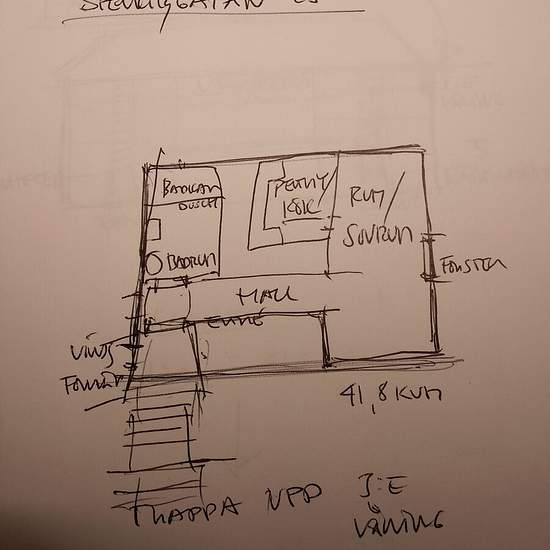 BADKAR
DUSCH
PENTRY/
KÖK
RUM/
SOVRUM
BADRUM
FÖNSTER
HALL
ENTRÉ
VINDS
FÖNSTER
41,8 KVM
TRAPPA UPP 3:E
VÅNING